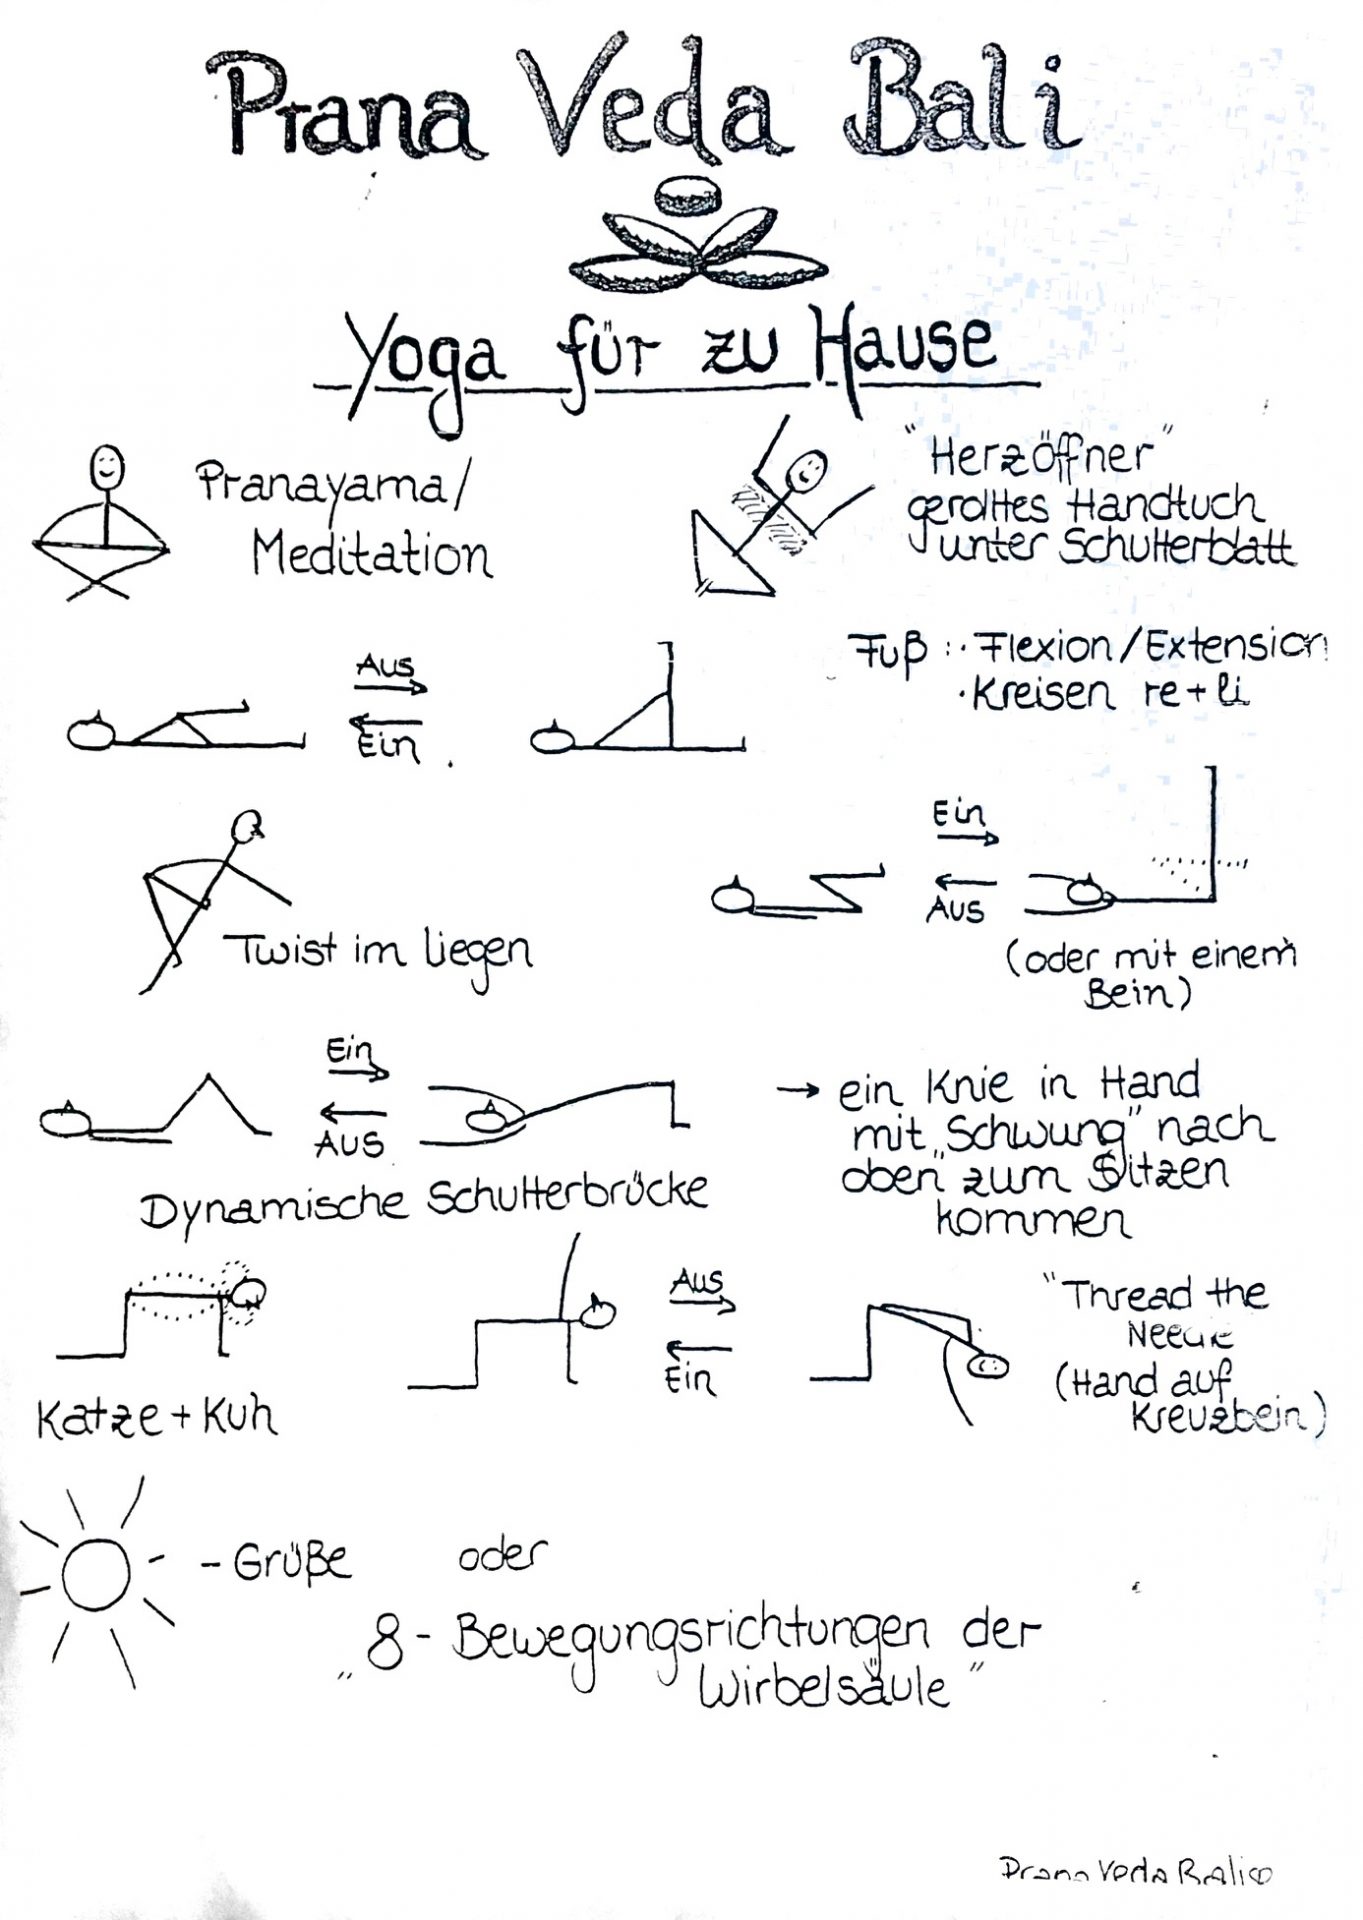 Prana Veda Bali
Yoga für zu Hause
Pranayama/
Meditation
"Herzöffner"
gerolltes Handtuch
unter Schulterblatt
Aus
Ein
Fuß: · Flexion/Extension
· Kreisen re+li
Twist im liegen
Ein
Aus
(oder mit einem
Bein)
Ein
Aus
Dynamische Schulterbrücke
→ ein Knie in Hand
mit "Schwung" nach
oben zum Sitzen
kommen
Katze + Kuh
Aus
Ein
"Thread the
Needle
(Hand auf
Kreuzbein)
- Grüße oder
"8-Bewegungsrichtungen der
Wirbelsäule"
Prana Veda Bali